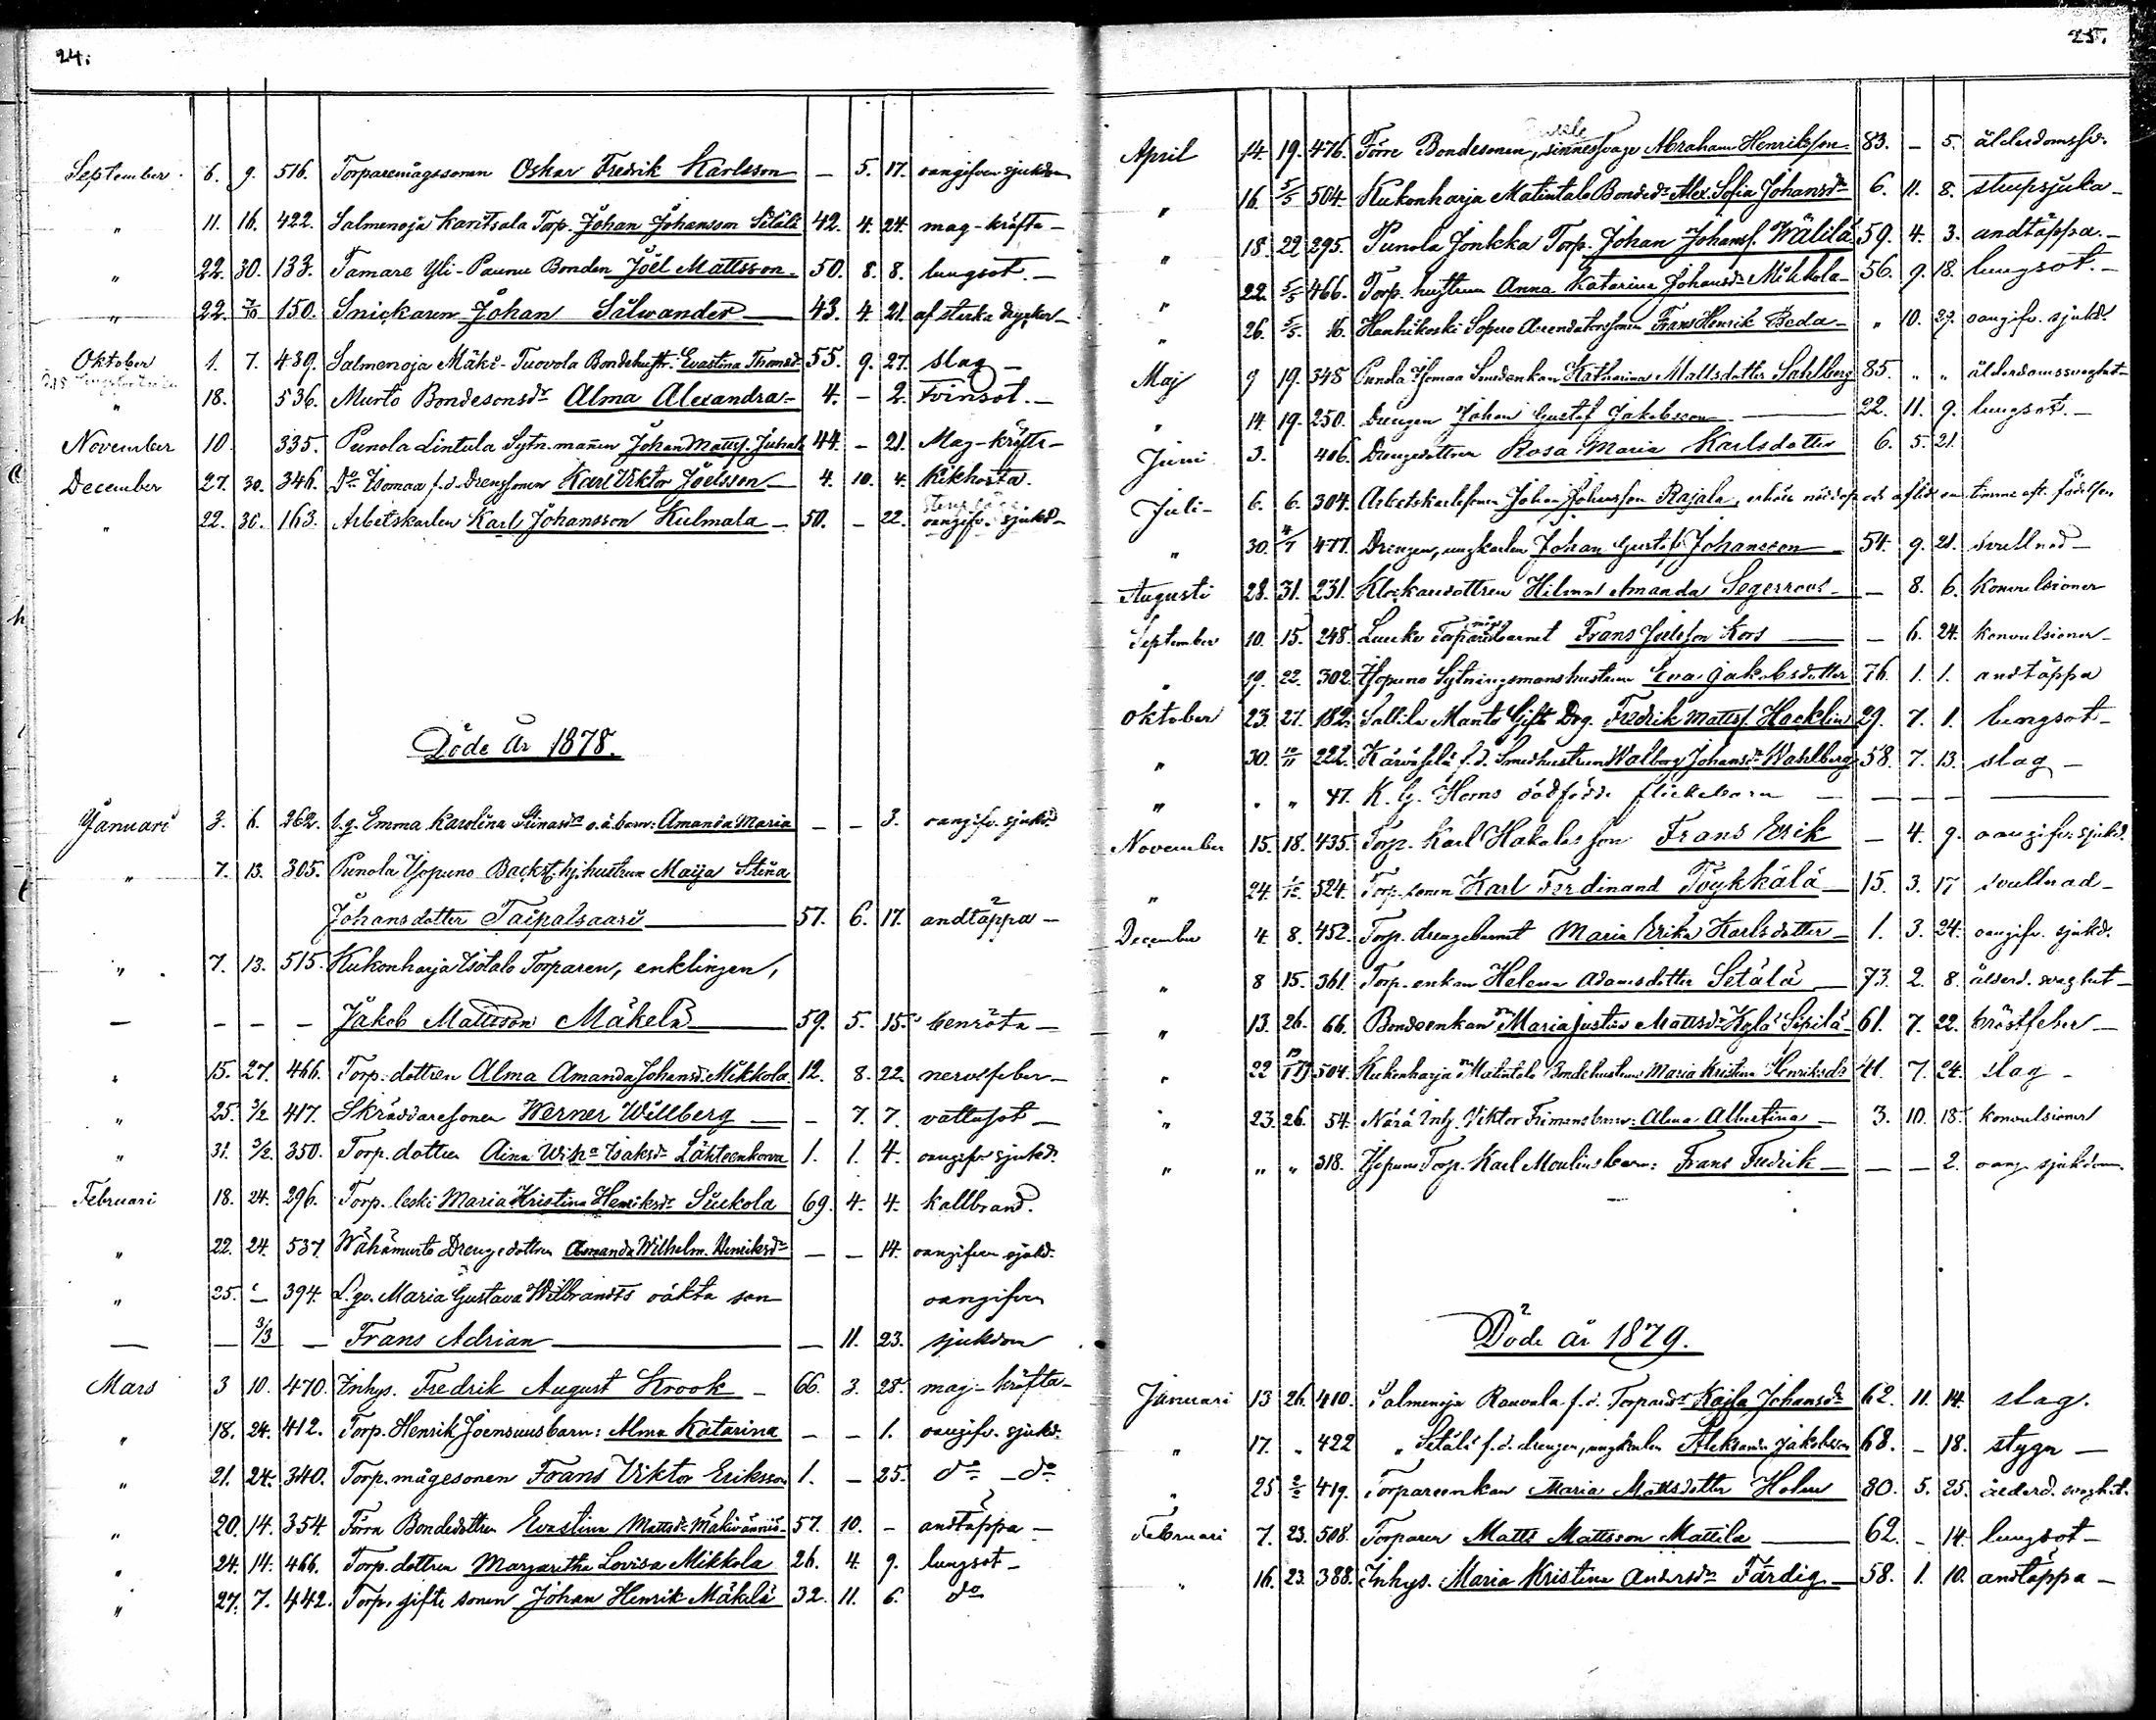 24.
September 6. 9. 516. Torparemågssonen Oskar Fredrik Karlsson — 5. 17. oangifven sjukdom
" 11. 16. 422. Salmenoja Karitsala Torp. Johan Johansson Setälä 42. 4. 24. mag-kräfta —
" 22. 30. 133. Tamare Yli-Paunu Bonden Joel Mattsson — 50. 8. 8. lungsot. —
" 22. 7/10 150. Snickaren Johan Sälwander — 43. 4. 21. af starka drycker —
Oktober 1. 7. 439. Salmenoja Mäki-Tuovola Bondehustr. Evastina Thomasdr 55. 9. 27. slag —
" 18. 536. Murto Bondesonsdr Alma Alexandra — 4. — 2. Tvinsot. —
November 10. 335. Punola Lintula Sytn.mannen Johan Mattss. Juhala 44. — 21. Mag-kräfta —
December 27. 30. 346. Do Isomaa f.d. Drengssonen Karl Viktor Joelsson — 4. 10. 4. Kikhosta.
" 22. 30. 163. Arbetskarlen Karl Johansson Kulmala — 50. — 22. oangifv. sjukd —
Döde År 1878.
Januari 3. 6. 262. l.g. Emma Karolina Stinasdr o.ä. barn: Amanda Maria — — 3. oangifv. sjukd.
" 7. 13. 305. Punola Isopuno Backst.hj. hustrun Maija Stina
Johansdotter Taipalsaari — 57. 6. 17. andtäppa —
" 7. 13. 515. Kukonharja Isotalo Torparen, enklingen,
— — — — Jakob Mattsson Mäkelä — 59. 5. 15. benröta —
" 15. 27. 466. Torp. dottren Alma Amanda Johansdr Mikkola 12. 8. 22. nervfeber —
" 25. 3/2 417. Skräddaresonen Werner Willberg — — 7. 7. vattusot —
" 31. 3/2. 350. Torp. dottren Aina Wilha Isaksdr Lähteenkorva 1. 1. 4. oangifv sjukd.
Februari 18. 24. 296. Torp. leski Maria Kristina Henriksdr Siukola 69. 4. 4. Kallbrand.
" 22. 24. 537. Wähämurto Drengedottren Amanda Wilhelm. Henriksdr — — 14. oangifven sjukd.
" 25. — 394. L.gv. Maria Gustava Wilbrandts oäkta son oangifven
— — 3/3 — Frans Adrian — — 11. 23. sjukdom
Mars 3 10. 470. Inhys. Fredrik August Krook — 66. 3. 28. mag-kräfta —
" 18. 24. 412. Torp. Henrik Joensuus barn: Alma Katarina — — 1. oangifv. sjukd.
" 21. 24. 340. Torp. mågesonen Frans Viktor Eriksson 1. — 25. do — do
" 20. 14. 354. Förra Bondedottren Evastina Mattsdr 57. 10. — andtäppa —
" 24. 14. 466. Torp. dottren Margaretha Lovisa Mikkola 26. 4. 9. lungsot —
" 27. 7. 442. Torp. gifte sonen Johan Henrik Mäkelä 32. 11. 6. do
25.
April 14. 19. 476. Förre Bondesonen, sinnessvage Abraham Henriksson 83. — 5. ålderdomssv.
" 16. 5/5 504. Kukonharja Matintalo Bondedr Alex. Sofia Johansdr 6. 11. 8. strupsjuka —
" 18. 22 295. Punola Jonkka Torp. Johan Johanss. Wälilä 59. 4. 3. andtäppa. —
" 22. 5/5 466. Torp. hustrun Anna Katarina Johansdr Mikkola — 56. 9. 18. lungsot. —
" 26. 5/5 16. Hanhikoski Sopuo Arendatorssonen Frans Henrik Beda — " 10. 29. oangifv. sjukd.
Maj 9 19. 348 Punola Isomaa Smedenkan Katharina Mattsdotter Sahlberg 85. " " ålderdomssvaghet —
" 14. 19. 250. Drengen Johan Gustaf Jakobsson — 22. 11. 9. lungsot. —
Juni 3. 406. Drengedottren Rosa Maria Karlsdotter 6. 5. 21.
Juli — 6. 6. 304. Arbetskarlssonen Johan Johansson Rajala, erhöll nöddop och afled en timme eft. födelsen
" 30. 4/ 477. Drengen, ungkarlen Johan Gustaf Johansson — 54. 9. 21. svullnad —
Augusti 28. 31. 231. Klockaredottren Hilma Amanda Segerroos — — 8. 6. konvulsioner
September 10. 15. 248. barnet Frans Joelsson Koos — — 6. 24. konvulsioner —
" 19. 22. 302. Isopuno Sytningsmanshustrun Eva Jakobsdotter 76. 1. 1. andtäppa
Oktober 23. 27. 182. Sallila Manto Gift Drg. Fredrik Mattss. Hacklin 29. 7. 1. lungsot —
" 30. 10/11 222. f.d. Smedhustrun Walborg Johansdr Wahlberg 58. 7. 13. slag —
" " " 47. K. G. Hems dödfödde flickebarn — — — —
November 15. 18. 435. Torp. Karl Hakalas son Frans Erik — 4. 9. oangifv. sjukd.
" 24. 1/12 524. Torp. sonen Karl Ferdinand Töykkälä 15. 3. 17 svullnad —
December 4. 8. 452. Torp. drengebarnet Maria Erika Karlsdotter — 1. 3. 24. oangifv. sjukd.
" 8 15. 361. Torp. enkan Helena Adamsdotter Setälä — 73. 2. 8. ålderd. svaghet —
" 13. 26. 66. Bondeenkan Maria Justina Mattsdr Kylä Sipilä — 61. 7. 22. bröstfeber —
" 22 504. Kukonharja Matintalo Bondehustrun Maria Kristina Henriksdr 41. 7. 24. slag —
" 23. 26. 54. Närä Inh. Viktor Frimans barn: Alma Albertina — 3. 10. 18. konvulsioner
" " " 318. Isopuno Torp. Karl Moulins barn: Frans Fredrik — — — 2. oang. sjukdom.
Döde år 1879.
Januari 13 26. 410. Salmenoja Rauvala f.d. Torparedr Kajsa Johansdr 62. 11. 14. slag.
" 17. " 422 " Setälä f.d. drengen, ungkarlen Aleksander Jakobsson 68. — 18. stygn —
" 25 2/2 419. Torpareenkan Maria Mattsdotter Holm 80. 5. 25. ålderd. svaghet.
Februari 7. 23. 508. Torparen Matts Mattsson Mattila — 62. — 14. lungsot —
" 16. 23. 388. Inhys. Maria Kristina Andersdr Färdig — 58. 1. 10. andtäppa —